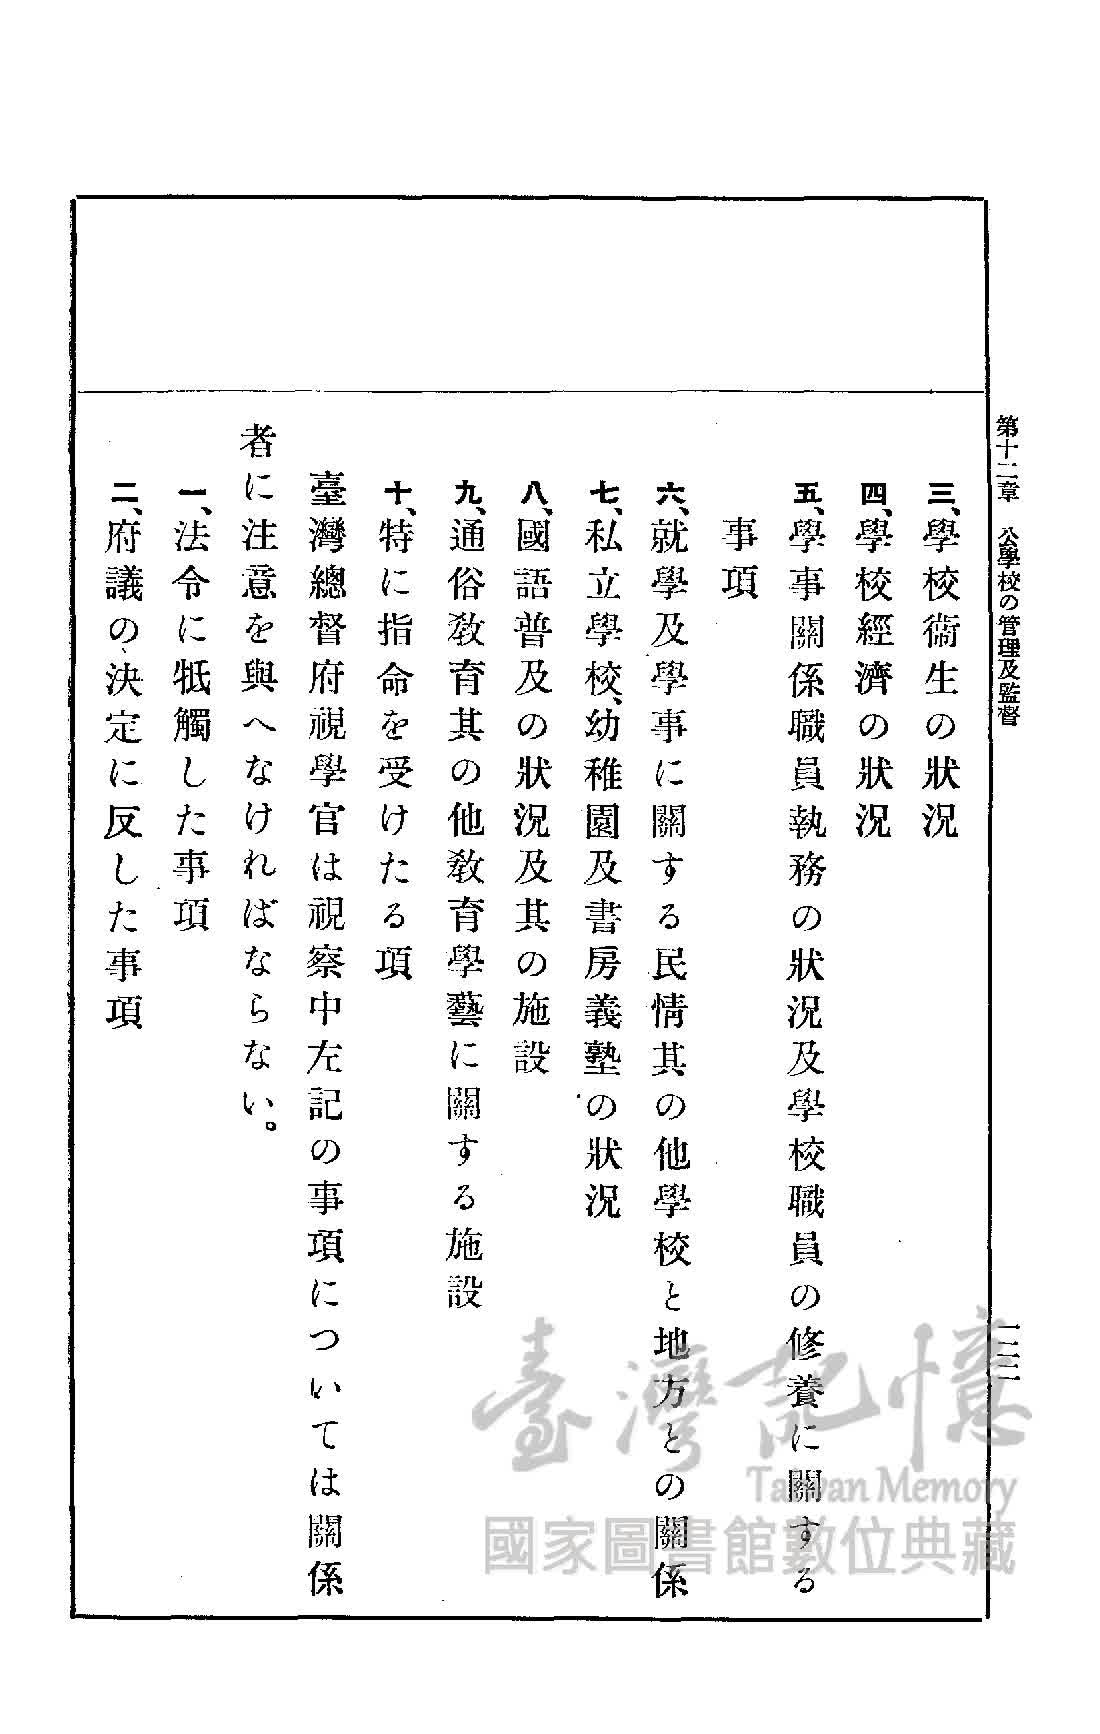 第十二章　公學校の管理及監督
一二二
三、學校衞生の狀況
四、學校經濟の狀況
五、學事關係職員執務の狀況及學校職員の修養に關する
事項
六、就學及學事に關する民情其の他學校と地方との關係
七、私立學校、幼稚園及書房義塾の狀況
八、國語普及の狀況及其の施設
九、通俗敎育其の他敎育學藝に關する施設
十、特に指命を受けたる項
臺灣總督府視學官は視察中左記の事項については關係
者に注意を與へなければならない。
一、法令に牴觸した事項
二、府議の決定に反した事項
臺灣記憶
Taiwan Memory
國家圖書館數位典藏